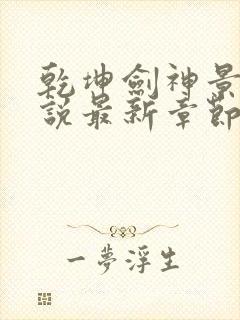 乾坤劍神景
說最新章節
一夢浮生